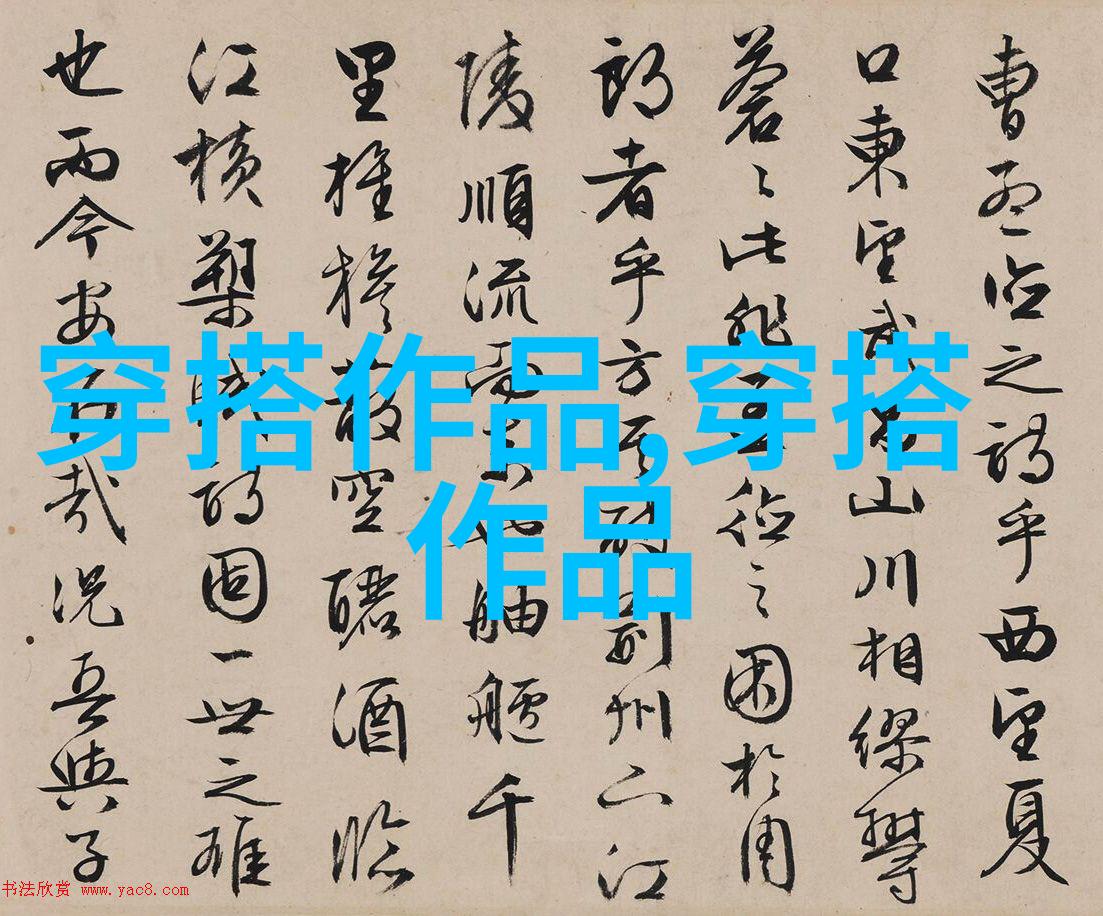 曹孟德之詩乎西望夏
口東望武昌山川相繆鬱
蒼〻此非孟德之困於周
郎者乎方其破荊州下江
陵順流而東也舳艫千
里旌旗蔽空釃酒臨
江橫槊賦詩固一世之雄
也而今安在哉況吾與子
穿搭作品,穿搭
作品
书法欣赏 www.yac8.com